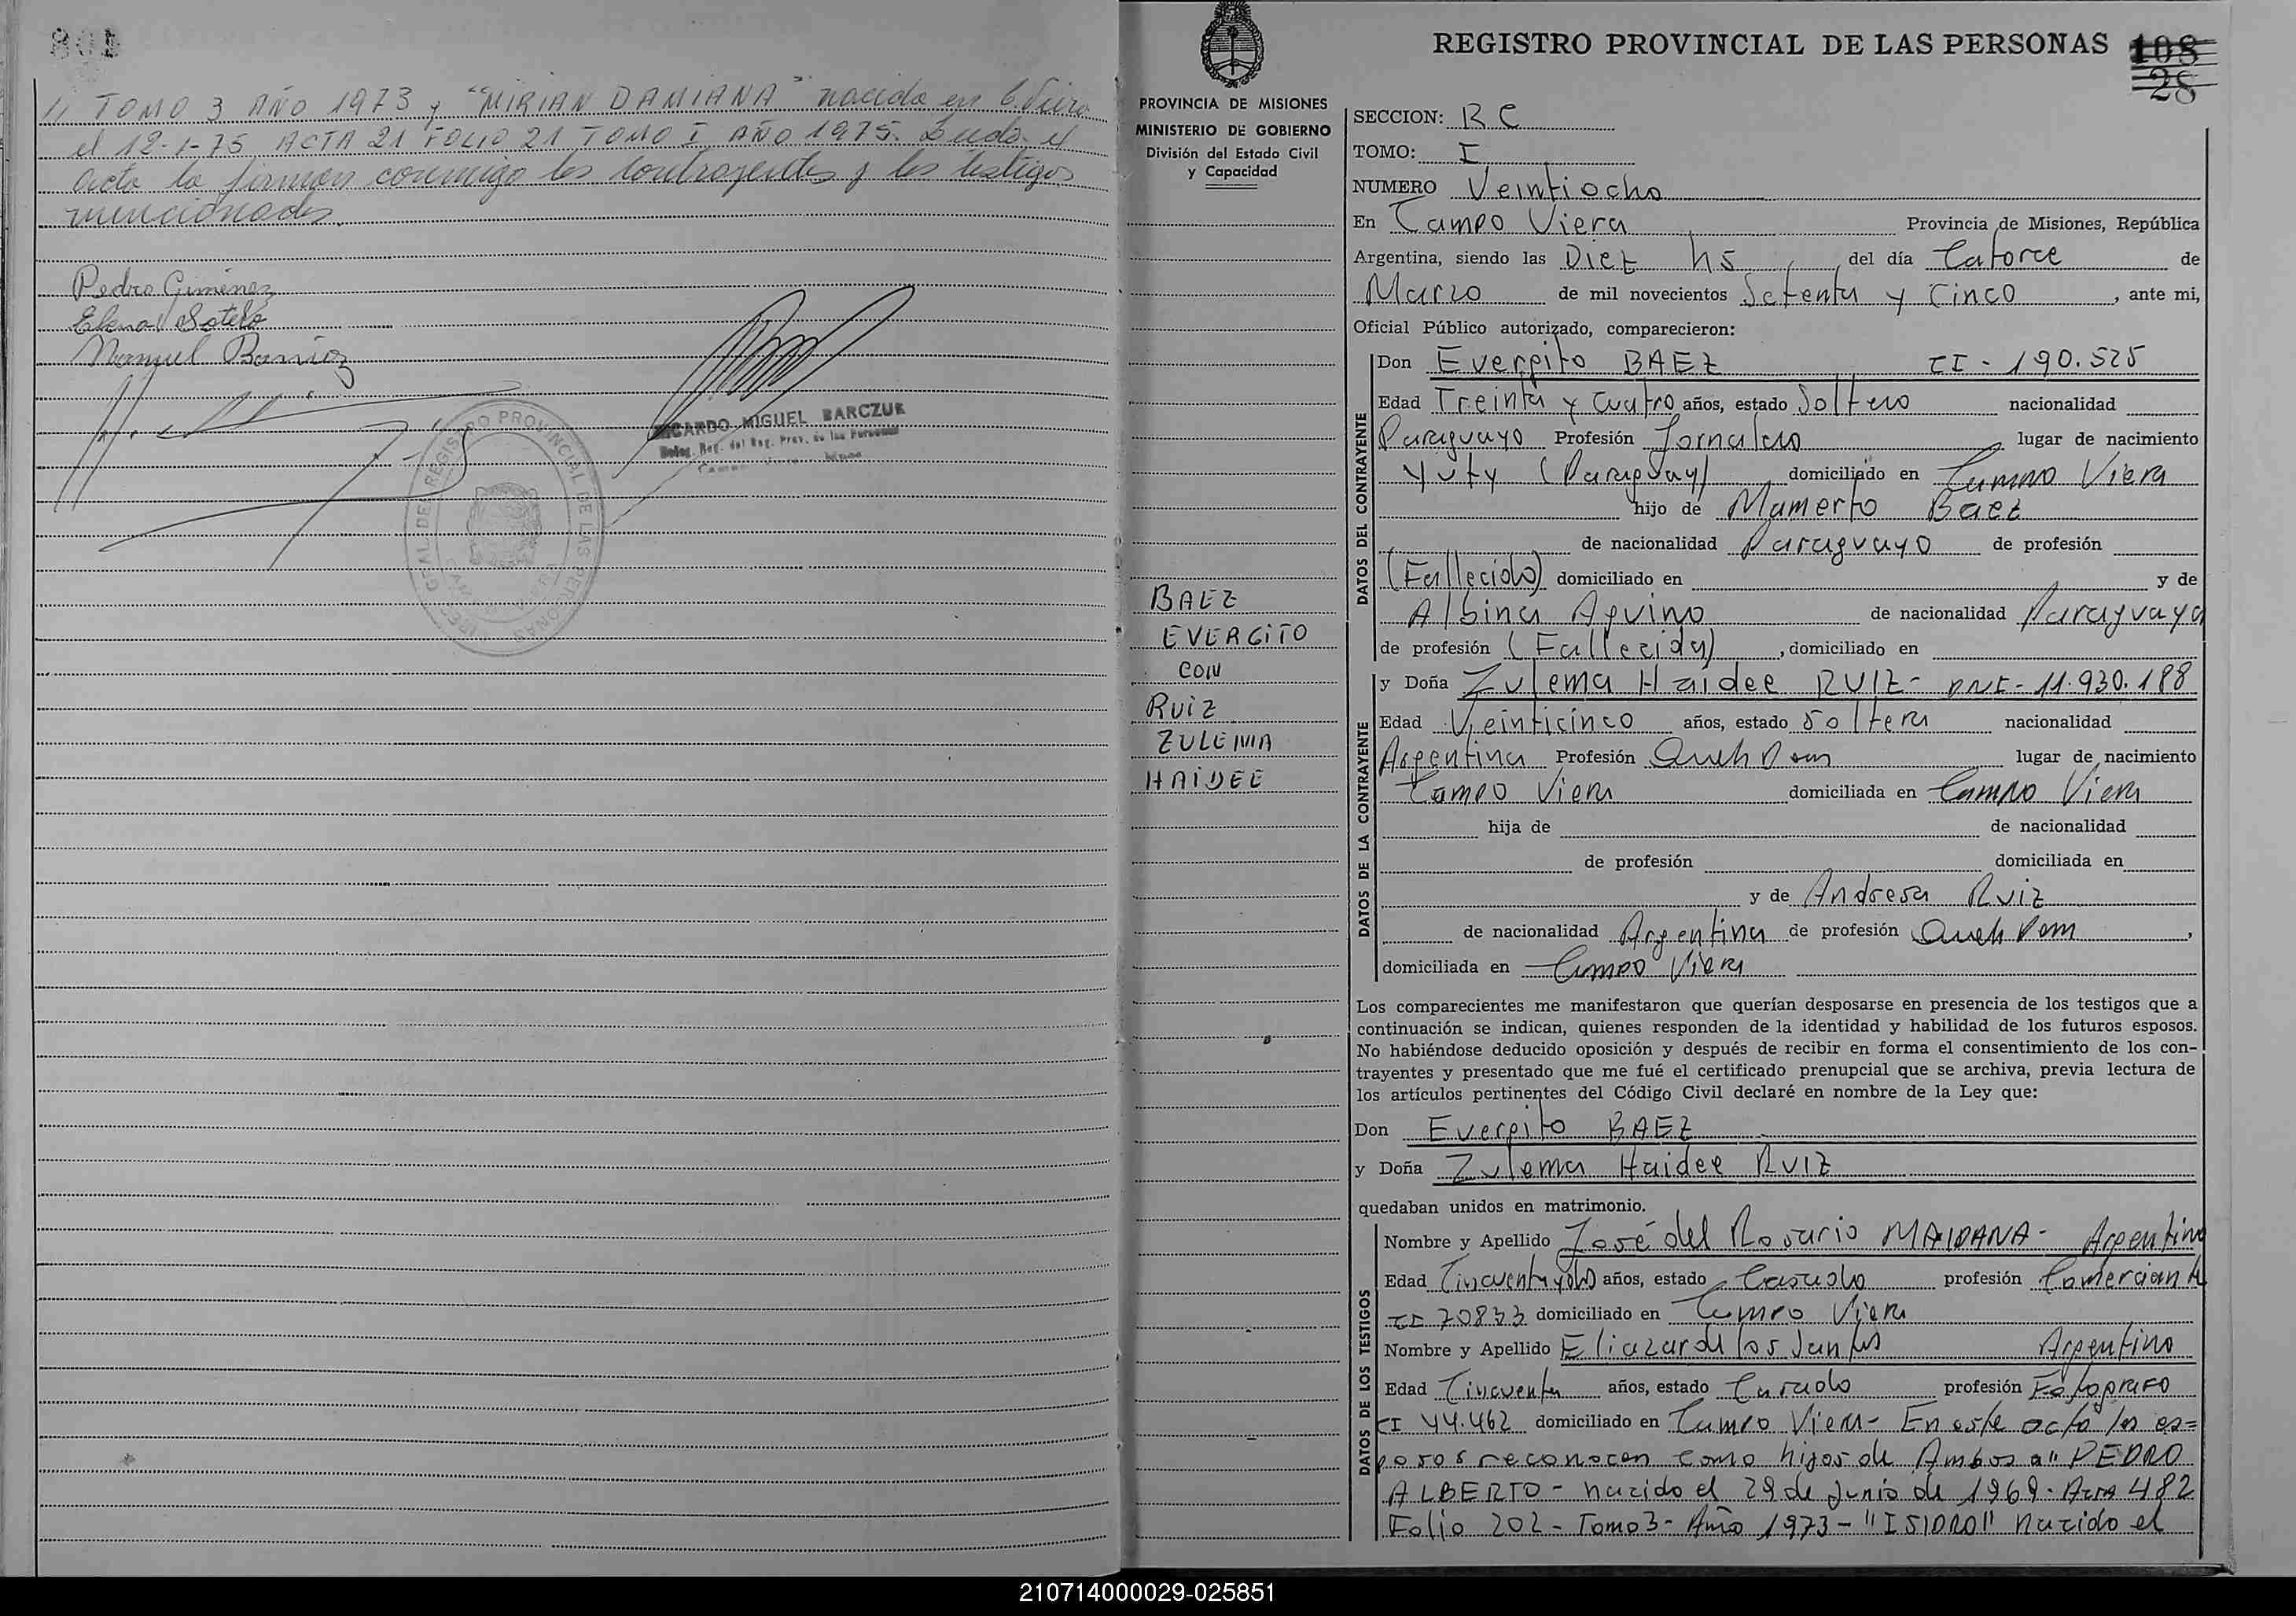 801
// TOMO 3 AÑO 1973 y "MIRIAN DAMIANA" nacida en C. Viera
el 12-1-75 ACTA 21 FOLIO 21 TOMO I AÑO 1975. Leida el
acta la firman conmigo los contrayentes y los testigos
mencionados
Pedro Gimenez
Elena Sotelo
Manuel Barrioz
RICARDO MIGUEL BARCZUK
Deleg. Reg. del Reg. Prov. de las Personas
REGISTRO PROVINCIAL DE LAS PERSONAS
PROVINCIA DE MISIONES
MINISTERIO DE GOBIERNO
División del Estado Civil
y Capacidad
BAEZ
EVERGITO
CON
RUIZ
ZULEMA
HAIDEE
REGISTRO PROVINCIAL DE LAS PERSONAS 108
28
SECCION: RC
TOMO: I
NUMERO Veintiocho
En Campo Viera Provincia de Misiones, República
Argentina, siendo las Diez hs del día Catorce de
Marzo de mil novecientos Setenta y Cinco, ante mi,
Oficial Público autorizado, comparecieron:
DATOS DEL CONTRAYENTE
Don Evergito BAEZ CI - 190.525
Edad Treinta y Cuatro años, estado Soltero nacionalidad
Paraguayo Profesión Jornalero lugar de nacimiento
Yuty (Paraguay) domiciliado en Campo Viera
hijo de Mamerto Baez
de nacionalidad Paraguayo de profesión
(Fallecido) domiciliado en y de
Albina Aquino de nacionalidad Paraguaya
de profesión (Fallecida), domiciliado en
DATOS DE LA CONTRAYENTE
y Doña Zulema Haidee RUIZ - DNI - 11.930.188
Edad Veinticinco años, estado Soltera nacionalidad
Argentina Profesión Queh Dom lugar de nacimiento
Campo Viera domiciliada en Campo Viera
hija de de nacionalidad
de profesión domiciliada en
y de Andresa Ruiz
de nacionalidad Argentina de profesión Queh Dom,
domiciliada en Campo Viera
Los comparecientes me manifestaron que querían desposarse en presencia de los testigos que a
continuación se indican, quienes responden de la identidad y habilidad de los futuros esposos.
No habiéndose deducido oposición y después de recibir en forma el consentimiento de los con-
trayentes y presentado que me fué el certificado prenupcial que se archiva, previa lectura de
los artículos pertinentes del Código Civil declaré en nombre de la Ley que:
Don Evergito BAEZ
y Doña Zulema Haidee RUIZ
quedaban unidos en matrimonio.
DATOS DE LOS TESTIGOS
Nombre y Apellido José del Rosario MAIDANA - Argentino
Edad Cincuenta y ocho años, estado Casado profesión Comerciante
CI 70833 domiciliado en Campo Viera
Nombre y Apellido Eliazar de los Santos Argentino
Edad Cincuenta años, estado Casado profesión Fotografo
CI 44.462 domiciliado en Campo Viera - En este acto los es=
posos reconocen como hijos de Ambos a "PEDRO
ALBERTO - nacido el 29 de Junio de 1969 - Acta 482
Folio 202 - Tomo 3 - Año 1973 - "ISIDRO" nacido el
210714000029-025851